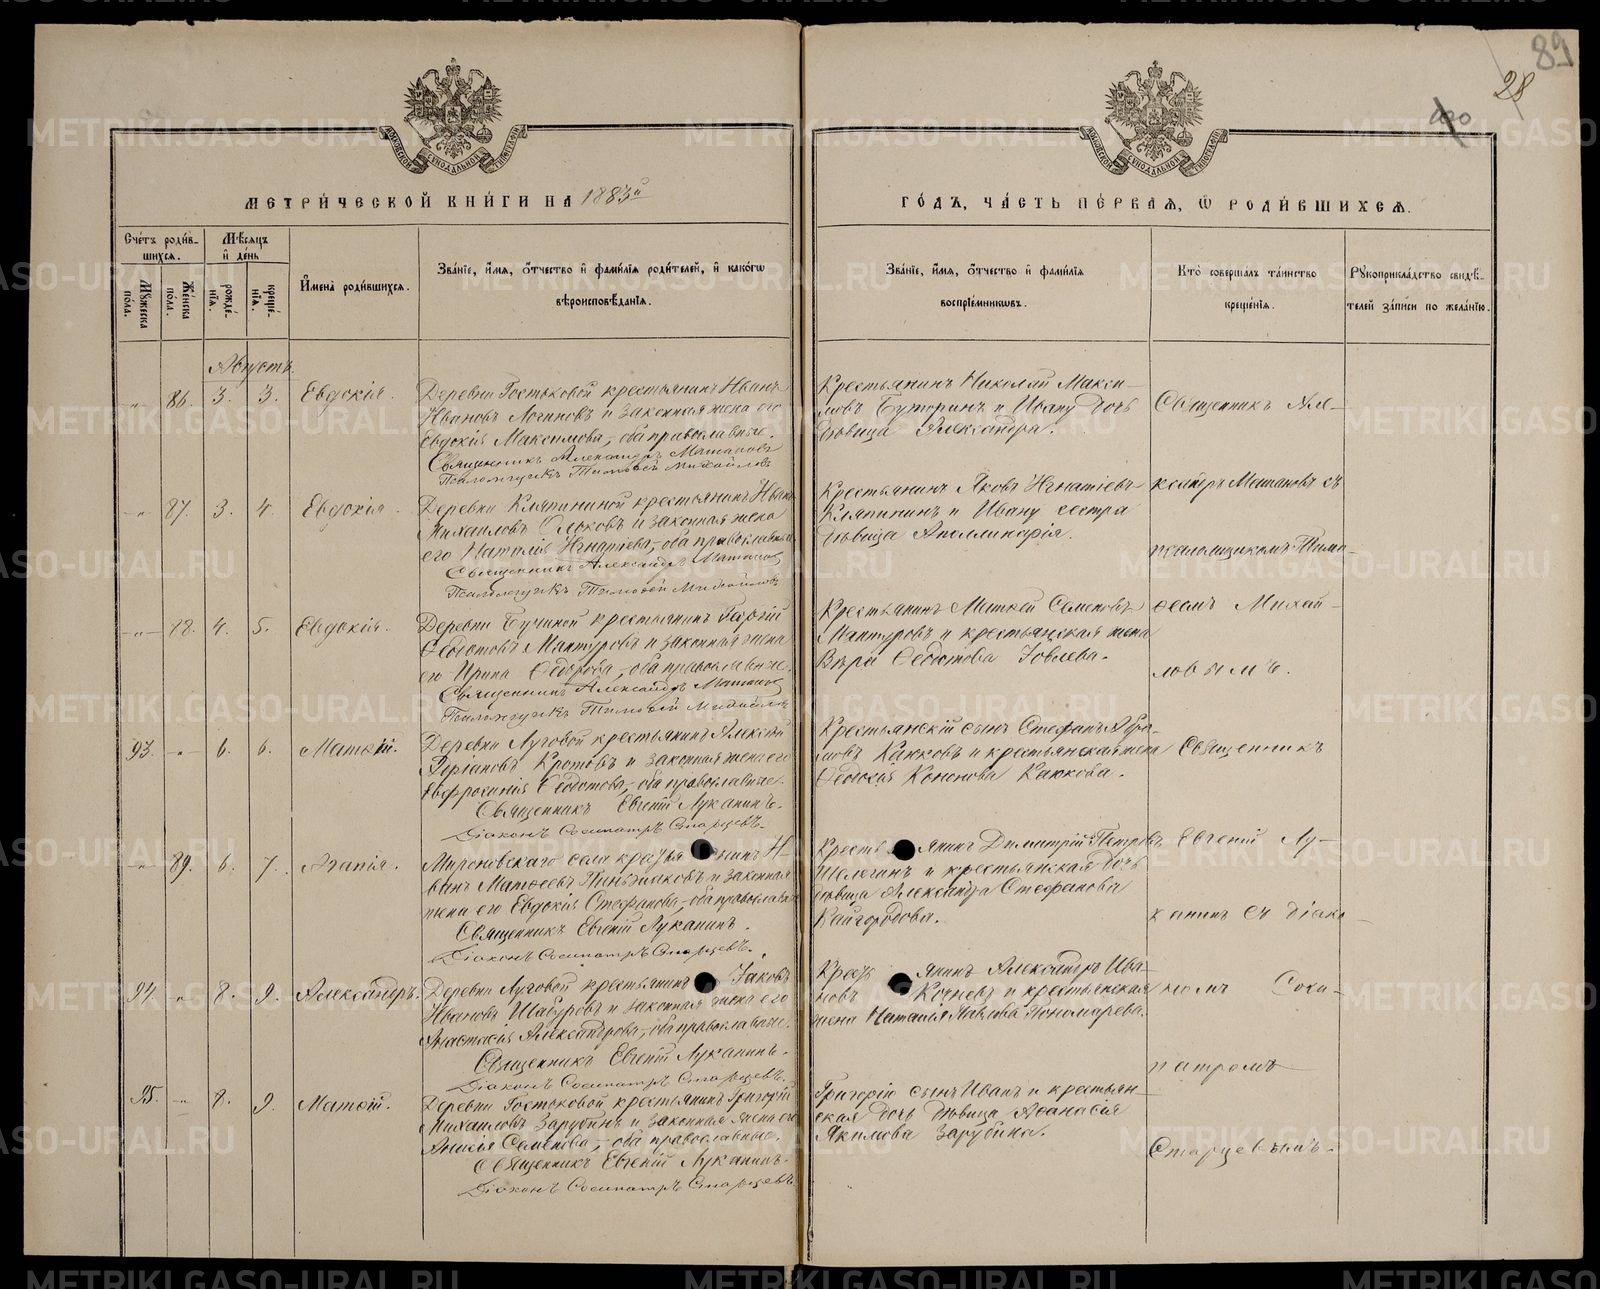 89
28
МЕТРИ́ЧЕСКОЙ КНИ́ГИ НА 1883й
ГО́ДЪ, ЧА́СТЬ ПЕ́РВАЯ, Ѡ РОДИ́ВШИХСЯ.
Сче́тъ роди́в-
шихся.
Му́жеска по́ла.
Же́нска по́ла.
Мѣ́сяцъ
и де́нь
рожде́-
нія.
креще́-
нія.
И҆мена̀ роди́вшихся.
Зва́ніе, и҆́мя, ѻ҆́тчество и҆ фами́лія роди́телей, и҆ како́гѡ
вѣроисповѣ́данія.
Зва́ніе, и҆́мя, ѻ҆́тчество и҆ фами́лія
воспріе́мниковъ.
Кто̀ соверша́лъ та́инство
креще́нія.
Рꙋкоприкла́дство свидѣ́-
телей за́писи по жела́нію.
Августъ.
„ 86. 3. 3. Евдокія.
Деревни Гостьковой крестьянинъ Иванъ
Ивановъ Логиновъ и законная жена его
Евдокія Максимова, оба православные.
Священникъ Александръ Маташовъ
Псаломщикъ Тимоѳей Михайловъ
Крестьянинъ Николай Макси-
мовъ Буторинъ и Ивану дочь
дѣвица Александра.
Священникъ Але-
„ 87. 3. 4. Евдокія.
Деревни Кляпининой крестьянинъ Иванъ
Михаиловъ и законная жена
его Наталія Игнатіева, оба православные
Священникъ Александръ Маташовъ
Псаломщикъ Тимоѳей Михайловъ
Крестьянинъ Яковъ Игнатіевъ
Кляпининъ и Ивану сестра
дѣвица Аполлинарія.
ксандръ Маташовъ съ
псаломщикомъ Тимо-
„ 18. 4. 5. Евдокія.
Деревни Бучиной крестьянинъ Георгій
Ѳедотовъ Мантуровъ и законная жена
его Ирина Ѳедорова, оба православные.
Священникъ Александръ Маташовъ
Псаломщикъ Тимоѳей Михайловъ
Крестьянинъ Матѳей Семеновъ
Мантуровъ и крестьянская жена
Вѣра Ѳедотова Іовлева.
ѳеемъ Михай-
ловымъ.
93. „ 6. 6. Матѳій.
Деревни Луговой крестьянинъ Алексій
Кротовъ и законная жена его
Евфросинія Ѳедотова, оба православные.
Священникъ Евгеній Луканинъ.
Діаконъ Сосипатръ Старцевъ.
Крестьянскій сынъ Стефанъ Абра-
мовъ Каюковъ и крестьянская жена
Ѳедосія Кононова Каюкова.
Священникъ
„ 89. 6. 7. Агапія.
Мироновскаго села крестьянинъ И-
ванъ Матѳеевъ Пиньжаковъ и законная
жена его Евдокія Стефанова, оба православные
Священникъ Евгеній Луканинъ.
Діаконъ Сосипатръ Старцевъ.
Крестьянинъ Димитрій Петровъ
Шелегинъ и крестьянская дочь
дѣвица Александра Стефанова
Кайгородова.
Евгеній Лу-
канинъ съ діако-
94. „ 8. 9. Александръ.
Деревни Луговой крестьянинъ Іаковъ
Ивановъ Шабуровъ и законная жена его
Анастасія Александрова, оба православные.
Священникъ Евгеній Луканинъ.
Діаконъ Сосипатръ Старцевъ.
Крестьянинъ Александръ Ива-
новъ Кочневъ и крестьянская
жена Наталія Павлова Пономарева.
номъ Соси-
патромъ
95. „ 8. 9. Матѳій.
Деревни Гостьковой крестьянинъ Григорій
Михаиловъ Зарубинъ и законная жена его
Анисія Семенова, оба православные.
Священникъ Евгеній Луканинъ.
Діаконъ Сосипатръ Старцевъ
Григорія сынъ Иванъ и крестьян-
ская дочь дѣвица Аѳанасія
Якимова Зарубина.
Старцевымъ.
METRIKI.GASO-URAL.RU